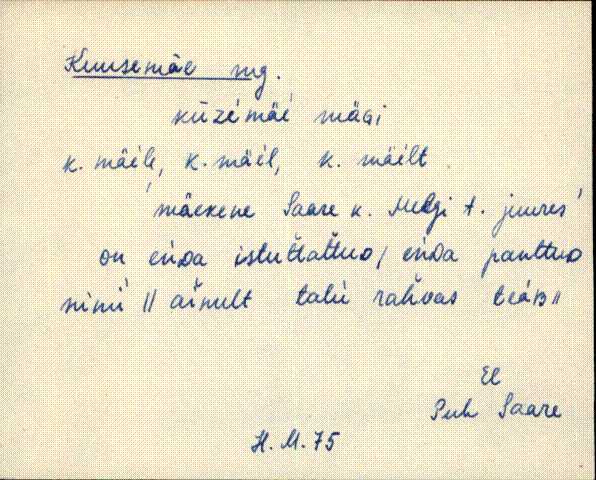 Kuusemäe mg.
kūzémäé mäGi
k. mäéle, k. mäél, k. mäélt
'mäekene Saare k. Melgi t. juures'
on eńDa istuťtaťtuD / eńDa panttuD
nimi || aĭnult talu rahvas teáB ||
El
Puh Saare
H. M. 75